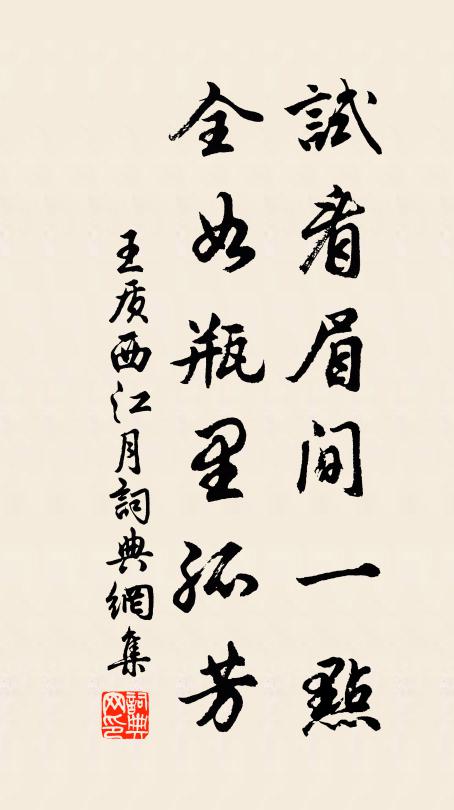 試看眉間一點
全如瓶里孤芳
王质西江月詞典網集
詞典
网印